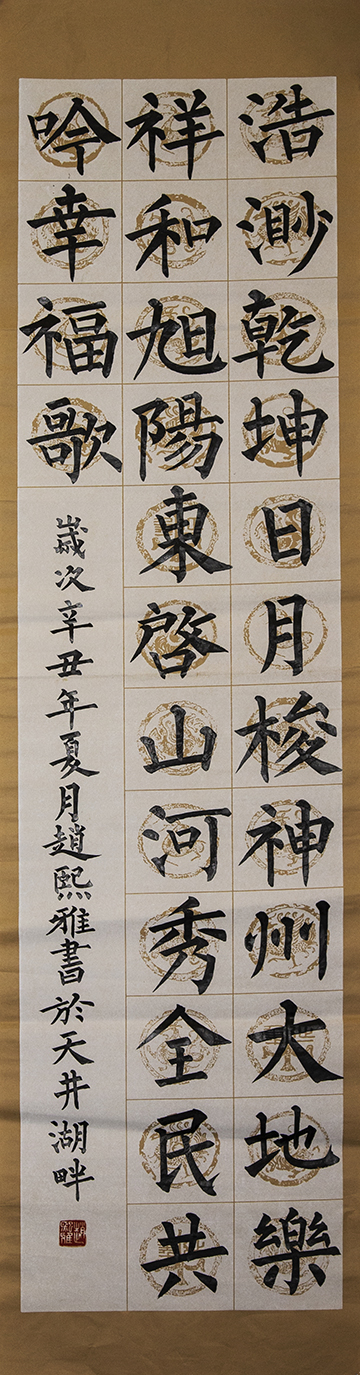 浩渺乾坤日月梭神州大地樂
祥和旭陽東啓山河秀全民共
吟幸福歌
歲次辛丑年夏月趙熙雅書於天井湖畔